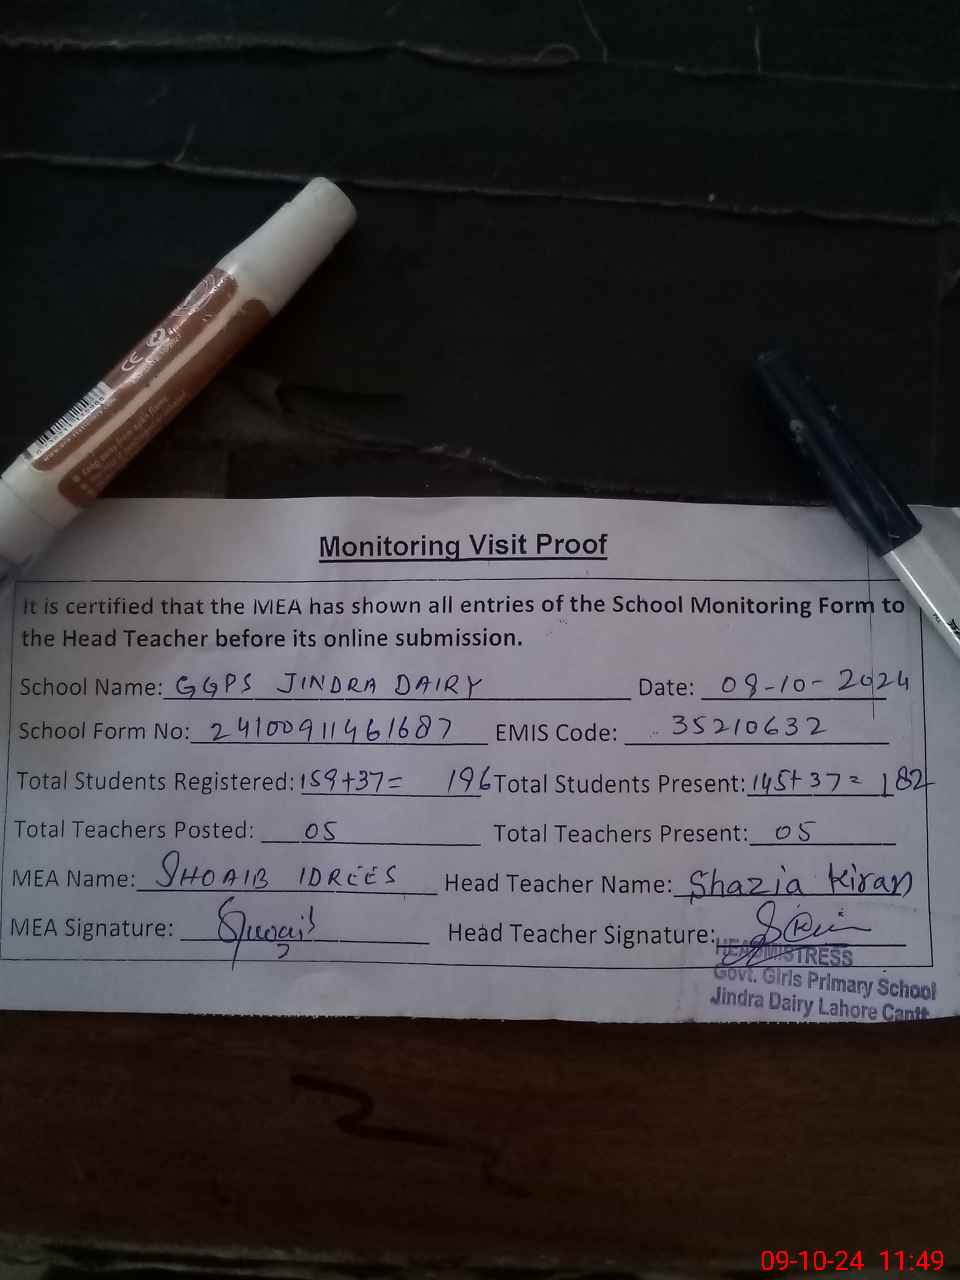 CE
Monitoring Visit Proof
It is certified that the MEA has shown all entries of the School Monitoring Form to
the Head Teacher before its online submission.
School Name: GGPS JINDRA DAIRY Date: 09-10-2024
School Form No: 24100911461687 EMIS Code: 35210632
Total Students Registered: 159+37= 196 Total Students Present: 145+37= 182
Total Teachers Posted: 05 Total Teachers Present: 05
MEA Name: SHOAIB IDREES Head Teacher Name: Shazia Kiran
MEA Signature: Head Teacher Signature:
HEADMISTRESS
Govt. Girls Primary School
Jindra Dairy Lahore Cantt
09-10-24 11:49